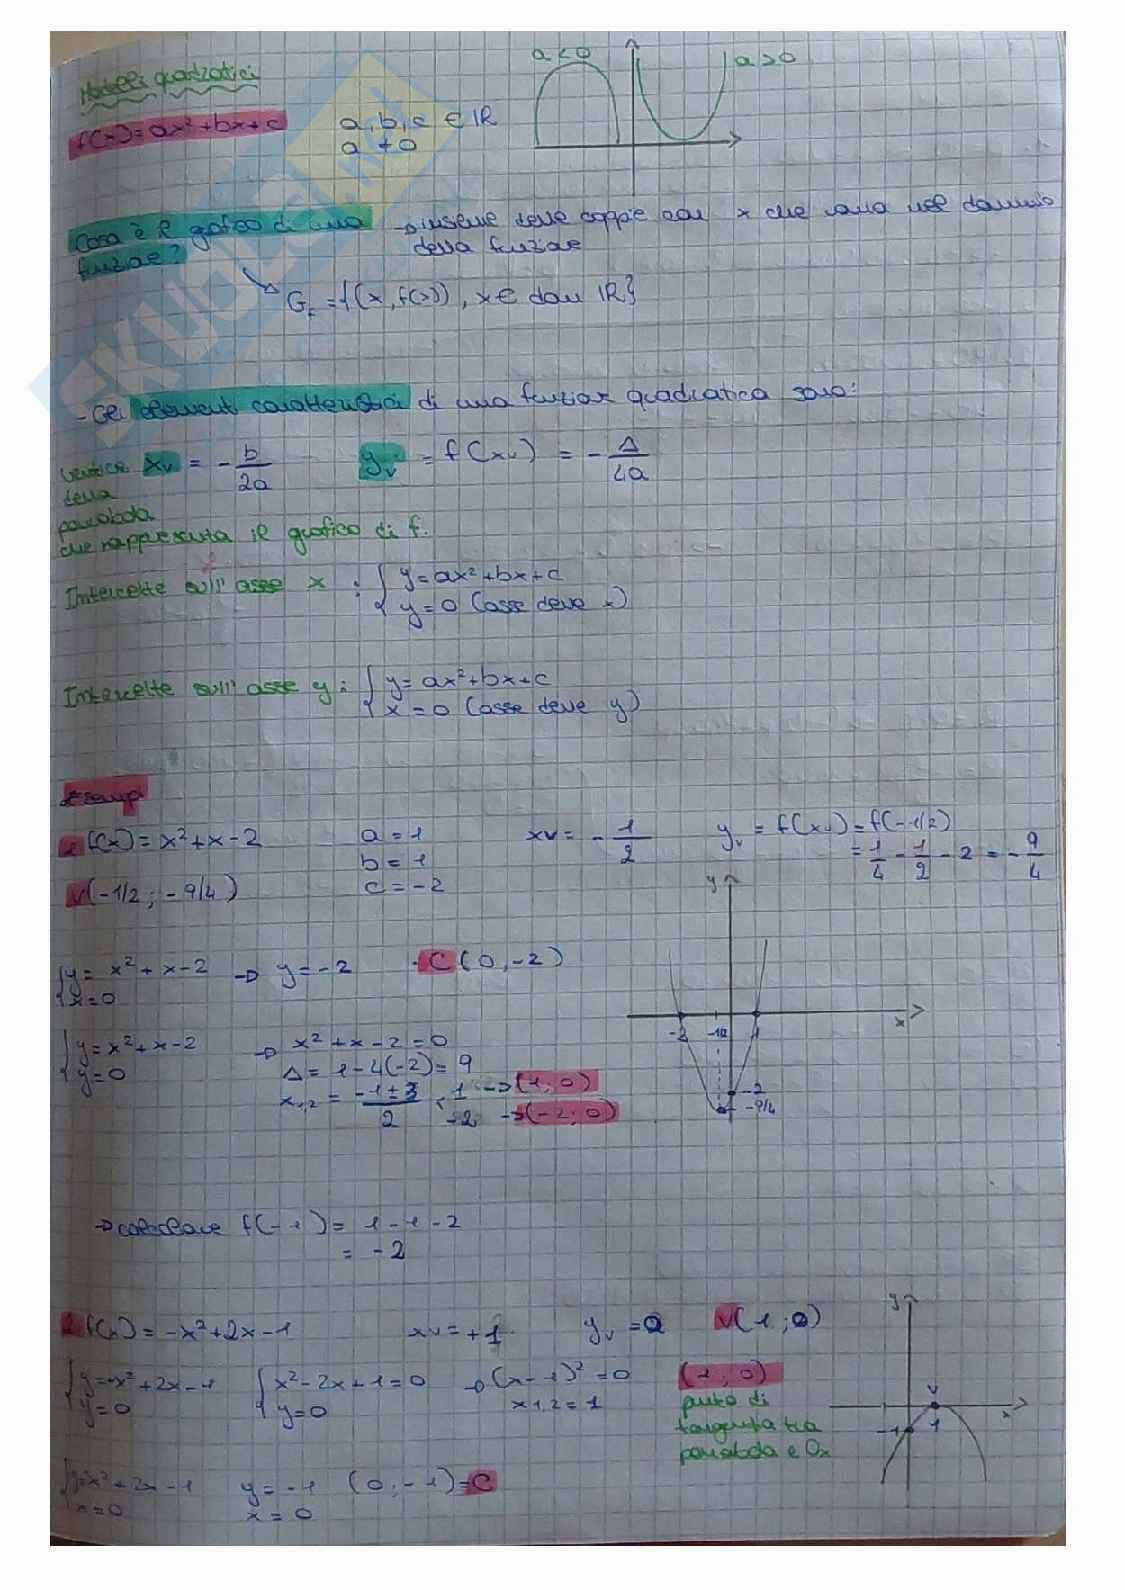 Modelli quadratici
a<0
a>0
f(x)=ax²+bx+c
a,b,c ∈ IR
a ≠ 0
Cosa è il grafico di una funzione?
→ insieme delle coppie con x che varia nel dominio della funzione
G_f = {(x, f(x)), x ∈ dom IR}
- Gli elementi caratteristici di una funzione quadratica sono:
Vertice della parabola che rappresenta il grafico di f.
xv = - b/2a
yv = f(xv) = - Δ/4a
Intercette sull'asse x : { y=ax²+bx+c
y=0 (asse delle x)
Intercette sull'asse y : { y=ax²+bx+c
x=0 (asse delle y)
Esempi
1 f(x)= x²+x-2
a=1
b=1
c=-2
xv = - 1/2
yv = f(xv)=f(-1/2)
= 1/4 - 1/2 - 2 = - 9/4
V(-1/2 ; -9/4)
{ y= x²+x-2 → y=-2
x=0
C(0,-2)
{ y=x²+x-2 → x²+x-2=0
y=0
Δ= 1-4(-2)= 9
x1,2 = -1±3/2 < 1 → (1;0)
-2 → (-2;0)
y
x
-2
1
-2
-9/4
→ calcolare f(-1)= 1-1-2
= -2
2 f(x)= -x²+2x-1
xv=+1
yv=0
V(1;0)
{ y=-x²+2x-1
y=0
{ x²-2x+1=0 → (x-1)²=0
y=0
x1,2=1
(1,0)
punto di tangenza tra parabola e Ox
y
V
x
-1
1
{ y=-x²+2x-1
x=0
y=-1
x=0
(0;-1)=C
SKUOLA.net